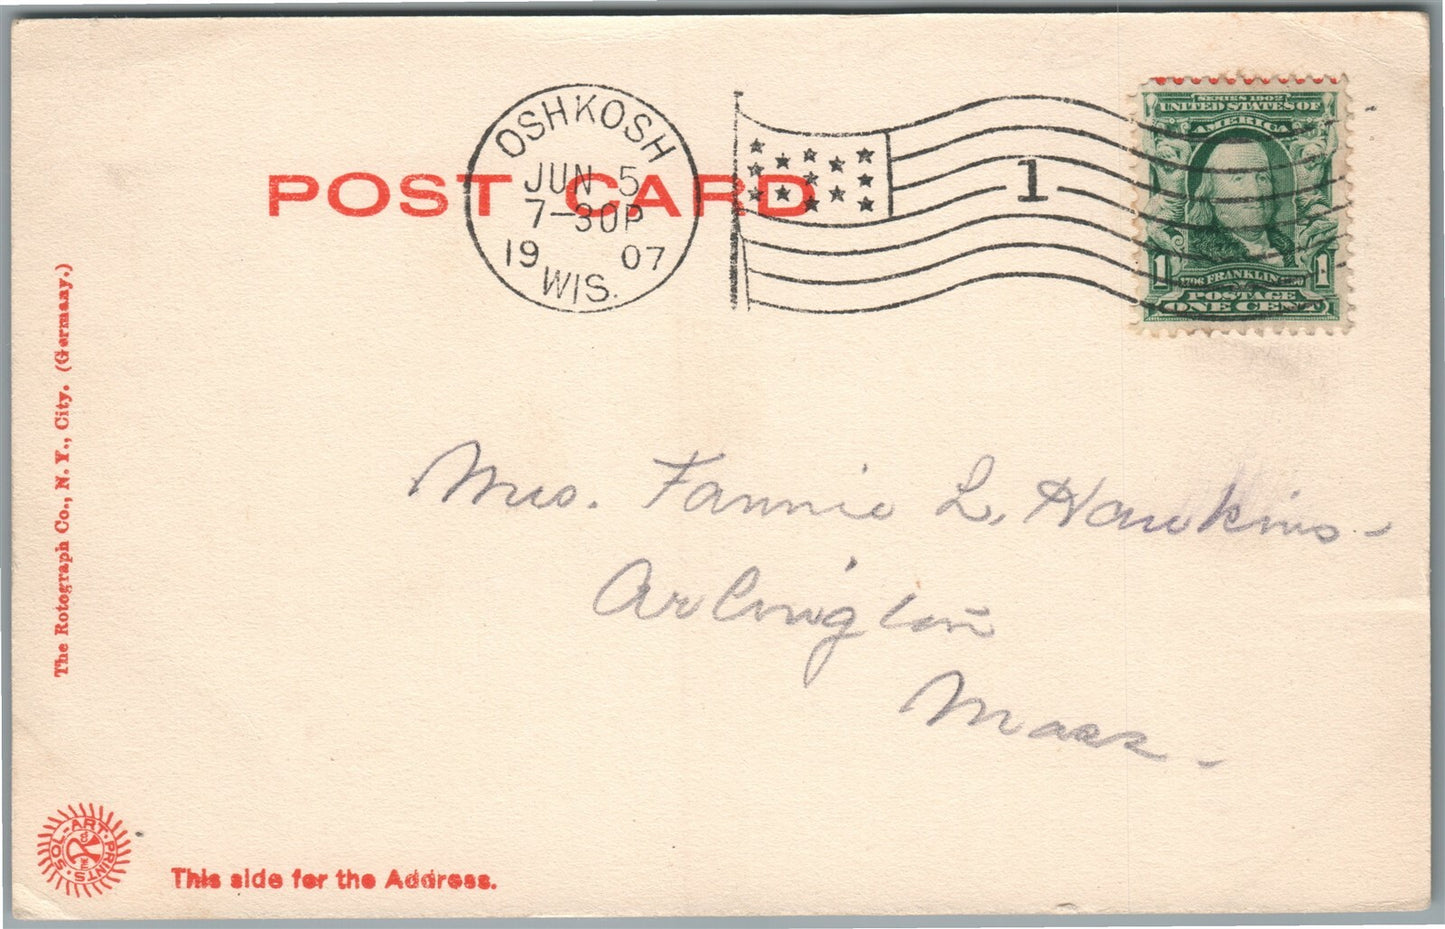 POST CARD
OSHKOSH
JUN 5
7-30P
19 07
WIS.
1
SERIES 1902
UNITED STATES OF
AMERICA
1706 FRANKLIN 1790
1 1
POSTAGE
ONE CENT
Mrs. Fannie L. Hawkins-
Arlington
Mass-
The Rotograph Co., N. Y., City. (Germany.)
SOL-ART-PRINTS
This side for the Address.